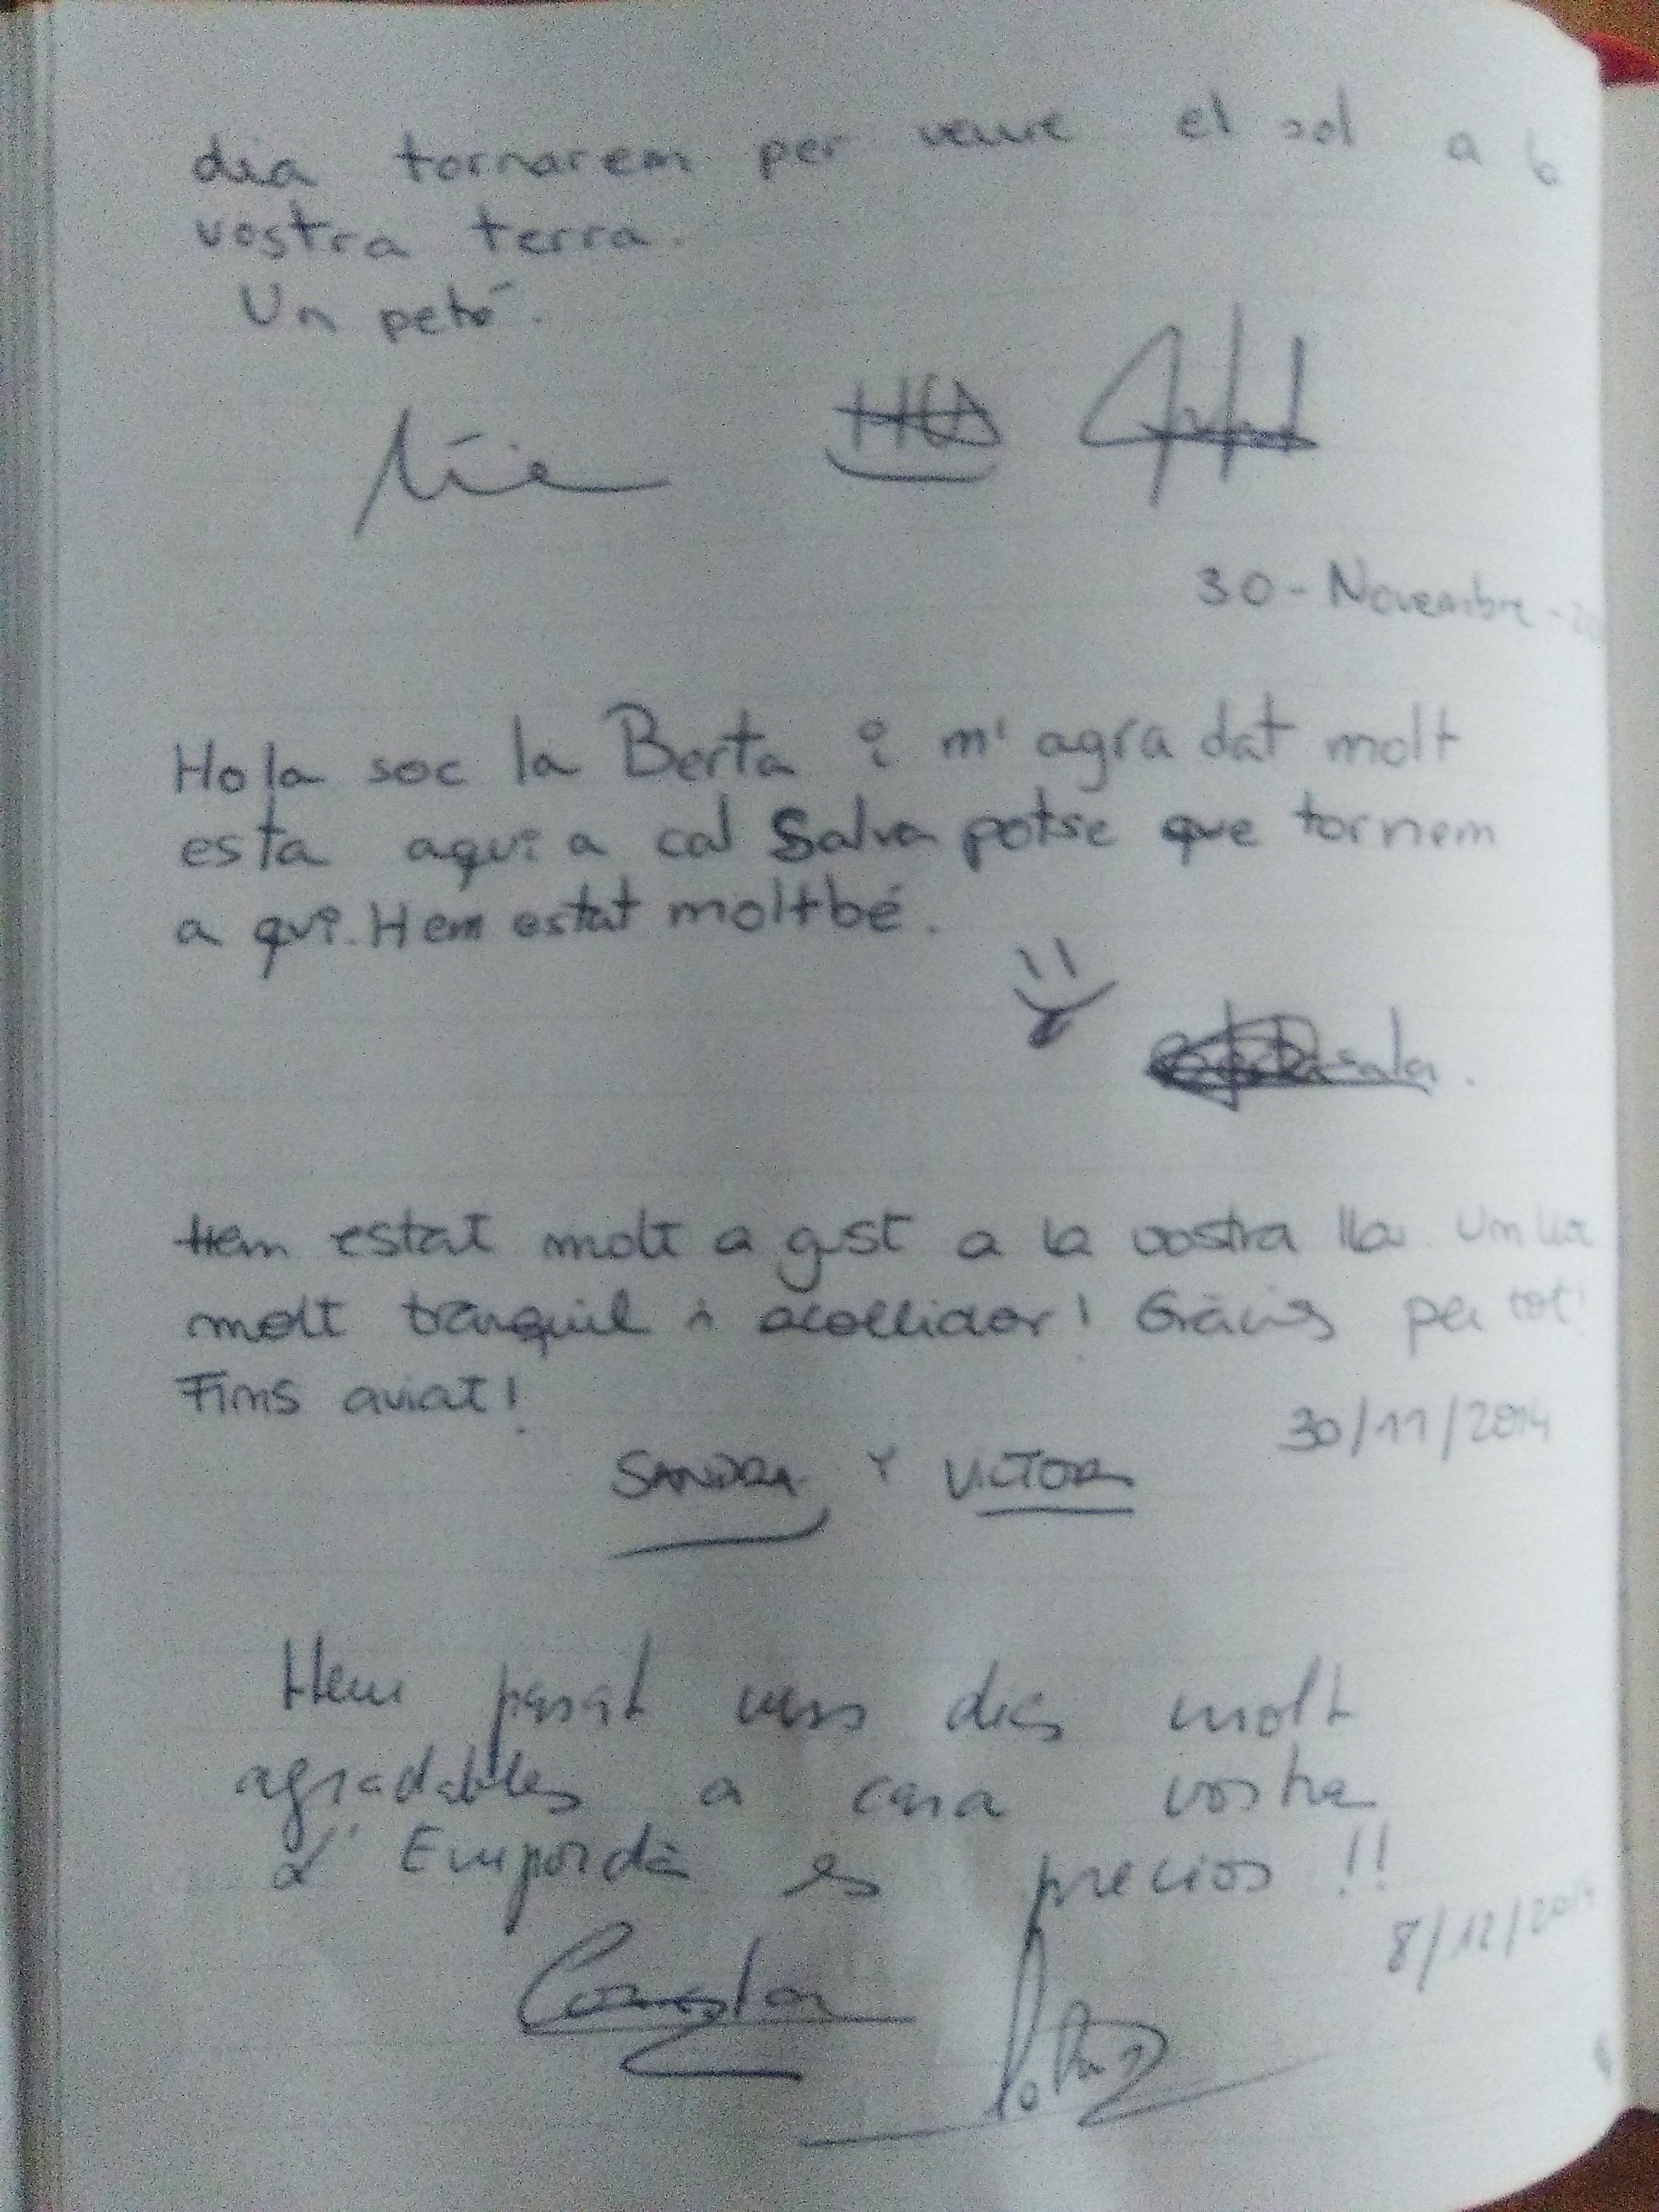 dia tornarem per veure el sol a la
vostra terra.
Un petó.
30 - Novembre -
Hola soc la Berta i m'agradat molt
esta aqui a cal Salva potse que tornem
a qui. Hem estat moltbé.
Hem estat molt a gust a la vostra llar. Un lloc
molt tranquil i acollidor! Gràcies per tot!
Fins aviat!
30/11/2014
SANDRA Y VICTOR
Hem pasat uns dies molt
agradables a casa vostra
L' Empordà es precios !!
8/12/2014